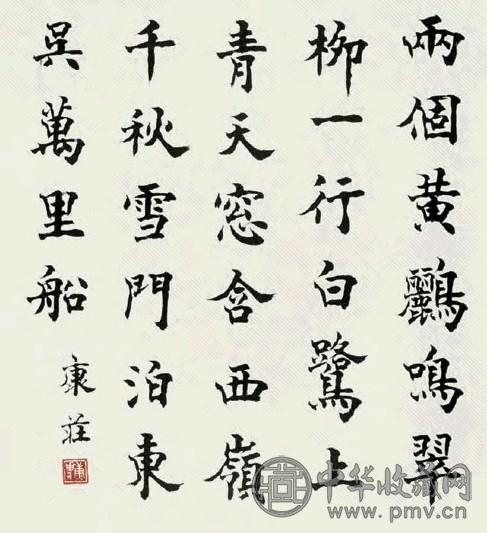 兩個黄鸝鳴翠
柳一行白鷺上
青天窓含西嶺
千秋雪門泊東
吳萬里船
康莊
中华收藏网
www.pmv.cn